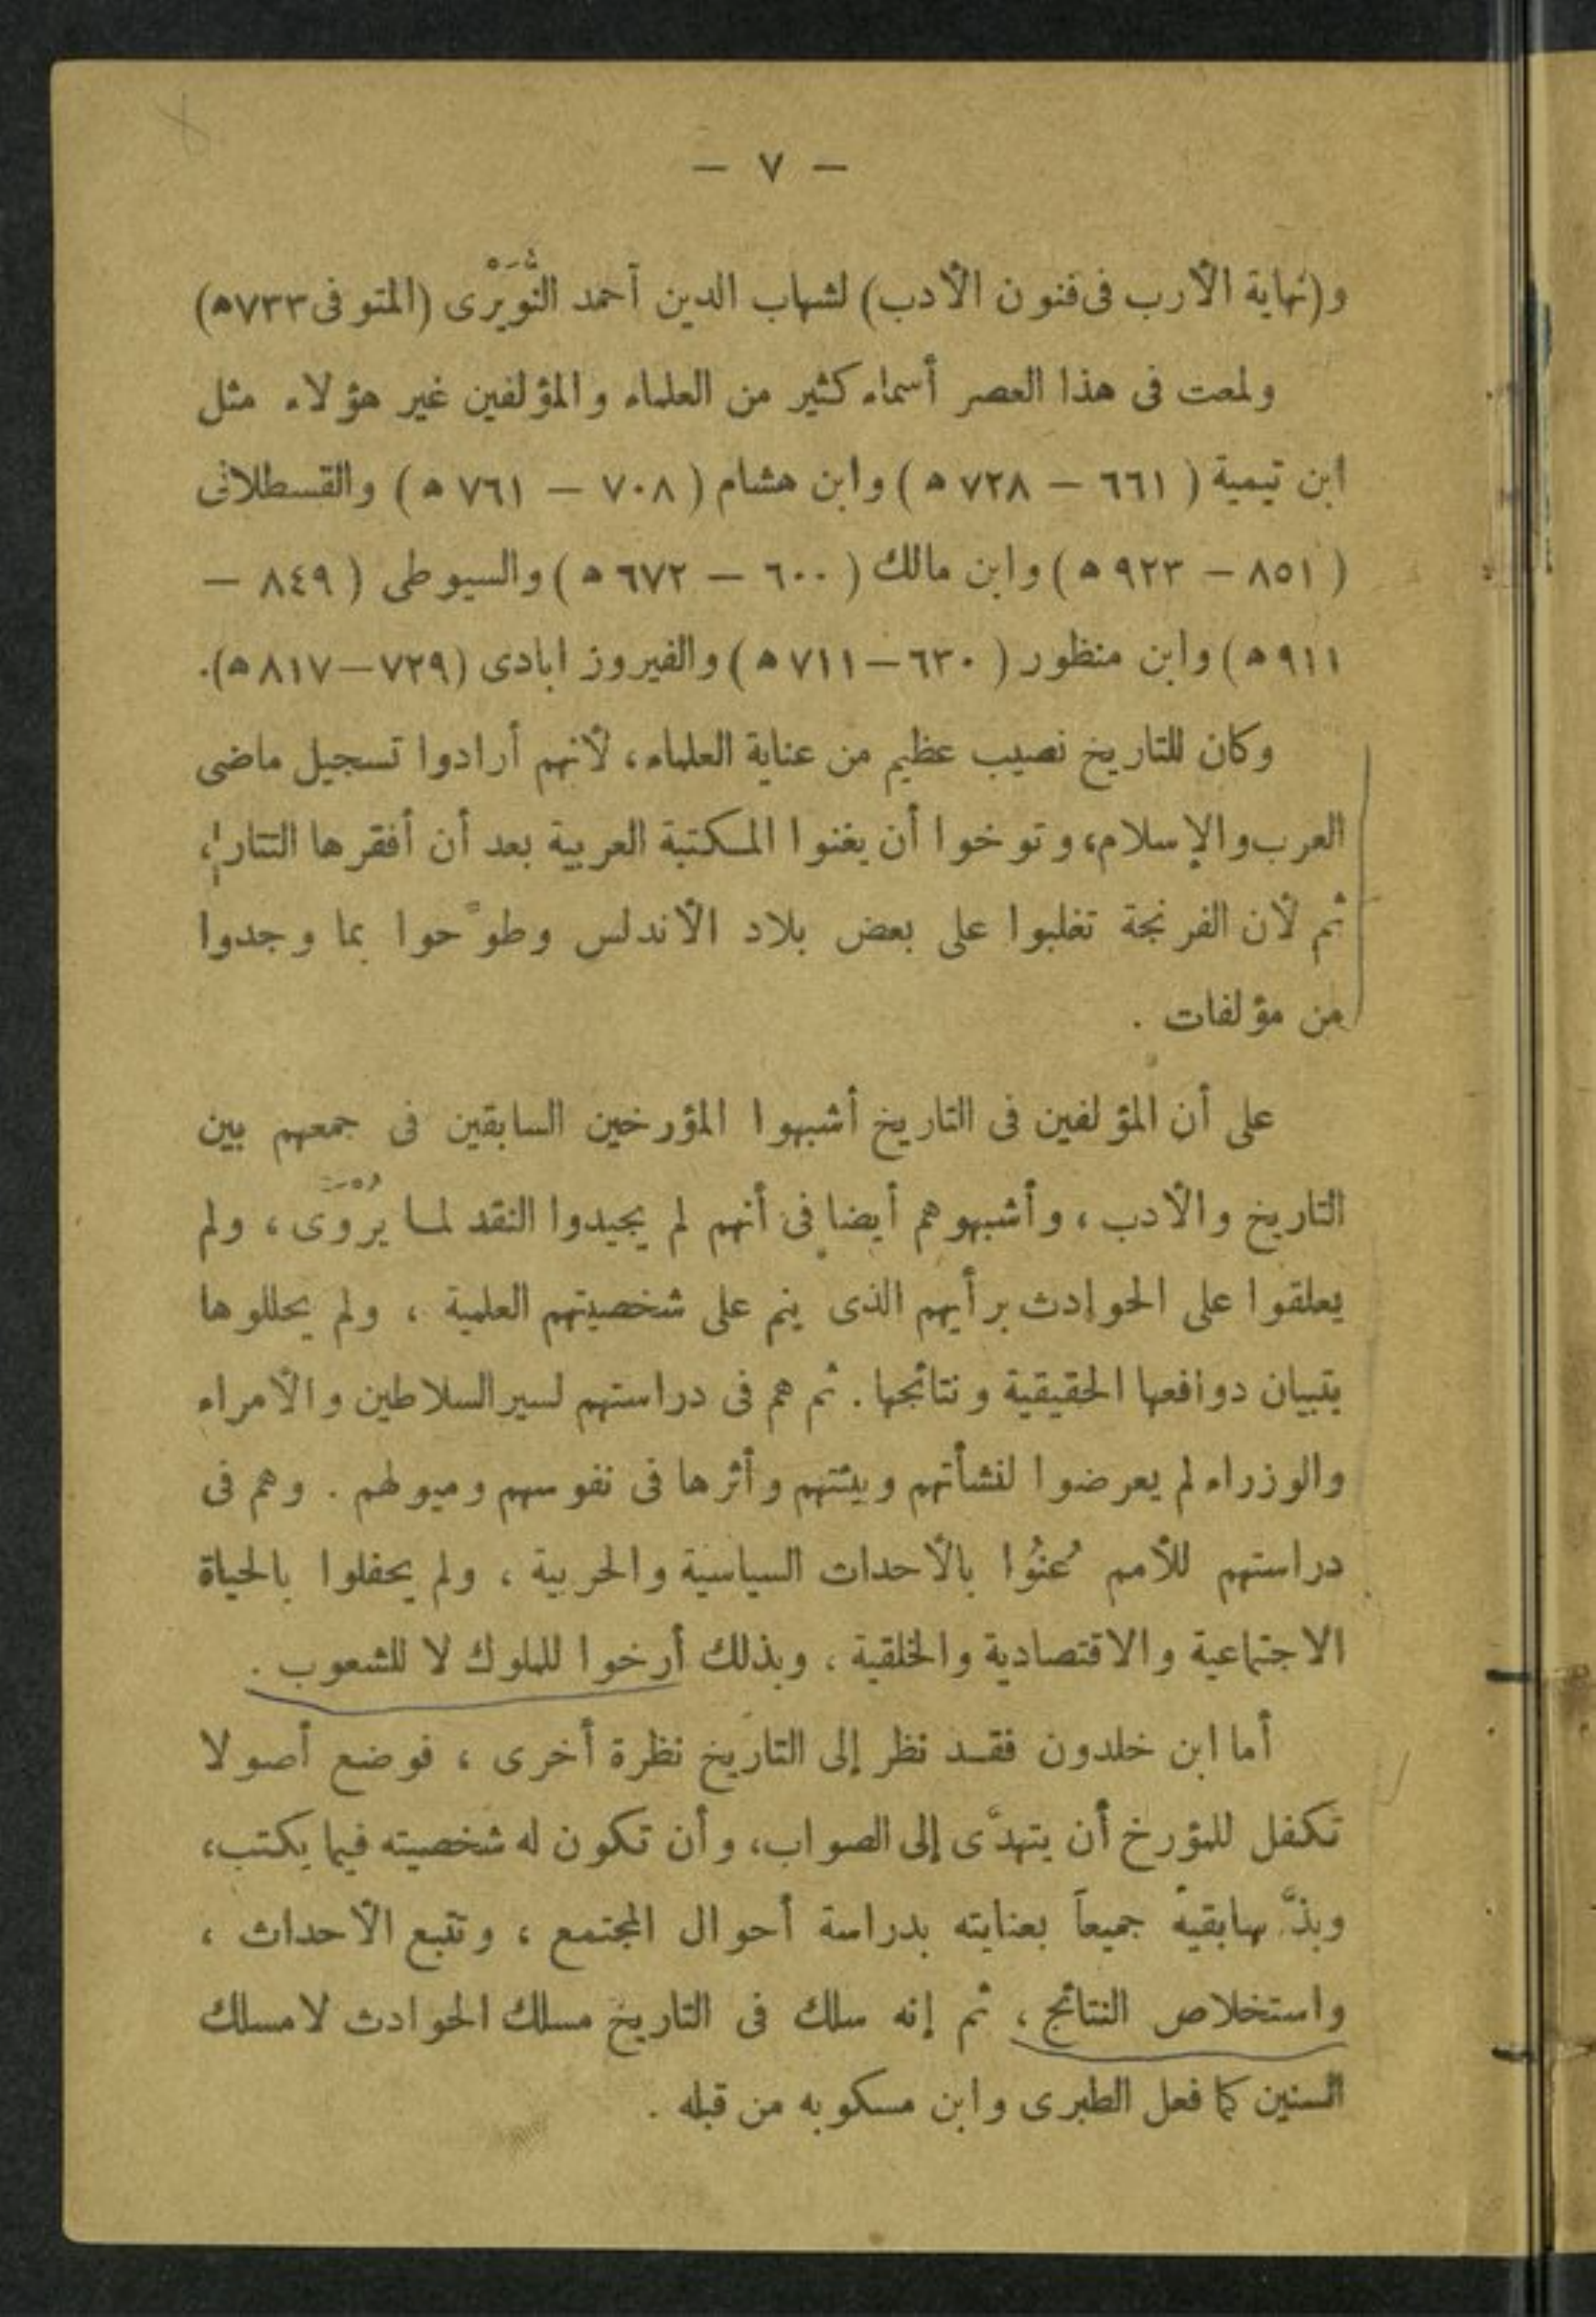 — ٧ —
و(نهاية الأرب فى فنون الأدب) لشهاب الدين أحمد النُّوَيْرى (المتوفى ٧٣٣ﻫ)
ولمعت فى هذا العصر أسماء كثير من العلماء والمؤلفين غير هؤلاء مثل
ابن تيمية ( ٦٦١ — ٧٢٨ ﻫ ) وابن هشام ( ٧٠٨ — ٧٦١ ﻫ ) والقسطلانى
( ٨٥١ — ٩٢٣ ﻫ ) وابن مالك ( ٦٠٠ — ٦٧٢ ﻫ ) والسيوطى ( ٨٤٩ —
٩١١ ﻫ ) وابن منظور ( ٦٣٠ — ٧١١ ﻫ ) والفيروز ابادى (٧٢٩—٨١٧ ﻫ).
وكان للتاريخ نصيب عظيم من عناية العلماء، لأنهم أرادوا تسجيل ماضى
العرب والإسلام، وتوخوا أن يغنوا المكتبة العربية بعد أن أفقرها التتار،
ثم لأن الفرنجة تغلبوا على بعض بلاد الأندلس وطوَّحوا بما وجدوا
من مؤلفات .
على أن المؤلفين فى التاريخ أشبهوا المؤرخين السابقين فى جمعهم بين
التاريخ والأدب ، وأشبهوهم أيضا فى أنهم لم يجيدوا النقد لما يُرْوَى ، ولم
يعلقوا على الحوادث برأيهم الذى ينم على شخصيتهم العلمية ، ولم يحللوها
بتبيان دوافعها الحقيقية ونتائجها . ثم هم فى دراستهم لسير السلاطين والأمراء
والوزراء لم يعرضوا لنشأتهم وبيئتهم وأثرها فى نفوسهم وميولهم . وهم فى
دراستهم للأمم عُنُوا بالأحداث السياسية والحربية ، ولم يحفلوا بالحياة
الاجتماعية والاقتصادية والخلقية ، وبذلك أرخوا للملوك لا للشعوب .
أما ابن خلدون فقد نظر إلى التاريخ نظرة أخرى ، فوضع أصولا
تكفل للمؤرخ أن يتهدَّى إلى الصواب، وأن تكون له شخصيته فيما يكتب،
وبذَّ سابقيه جميعاً بعنايته بدراسة أحوال المجتمع ، وتتبع الأحداث ،
واستخلاص النتائج ، ثم إنه سلك فى التاريخ مسلك الحوادث لا مسلك
السنين كما فعل الطبرى وابن مسكويه من قبله .